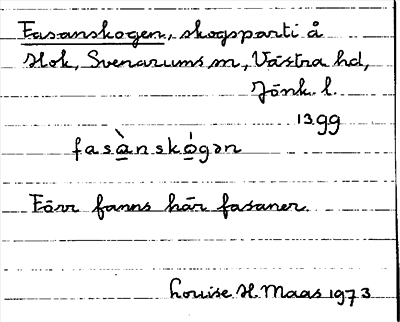 Fasanskogen, skogsparti å
Hok, Svenarums sn, Västra hd,
Jönk. l.
1399
fasànskógən
Förr fanns här fasaner.
Louise H. Maas 1973